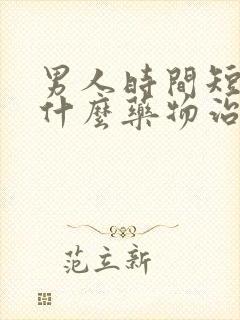 男人時間短
什麼藥物治
范立新